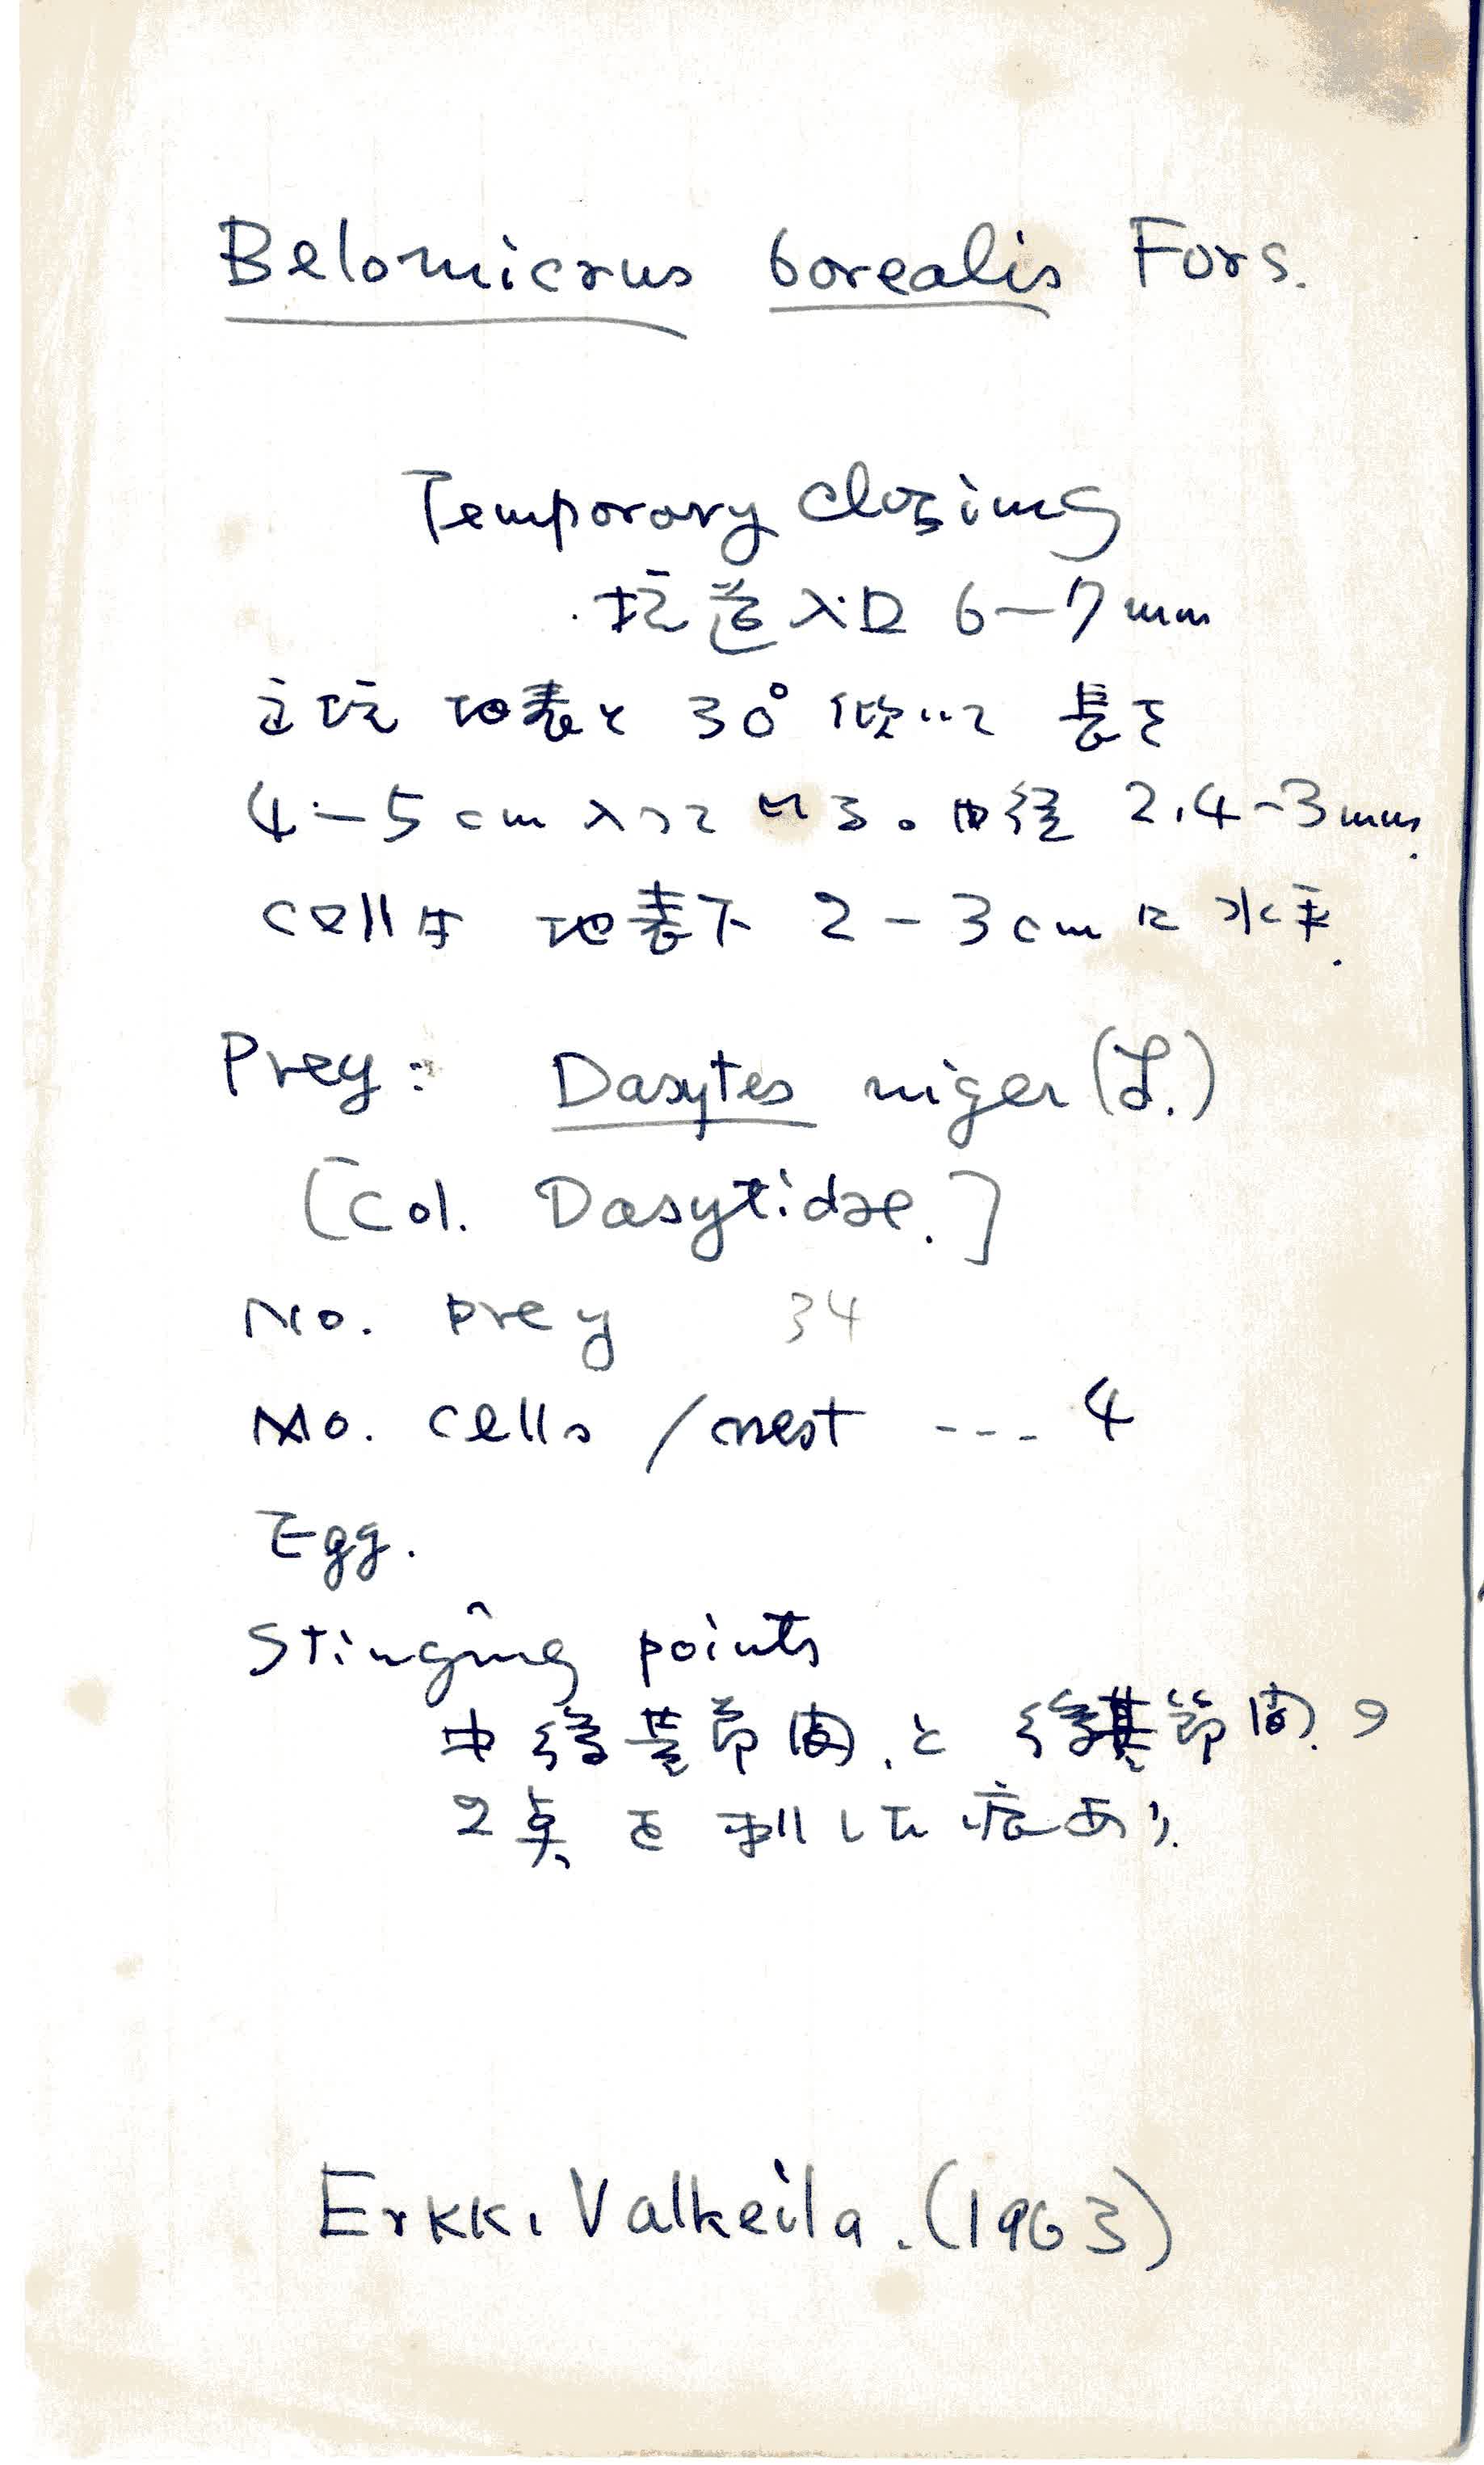 Belomicrus borealis Fors.
Temporary closing
坑道入口 6-7mm
主坑 地表と 30° 傾いて 長さ
4-5cm 入っている。中径 2.4-3mm.
cellは 地表下 2-3cm に 水平.
Prey: Dasytes niger (L.)
[Col. Dasytidae.]
No. prey 34
No. cells / nest --- 4
Egg.
Stinging points
中後基節間、と 後基節間.の
2点を刺した痕あり.
Erkki Valkeila. (1963)